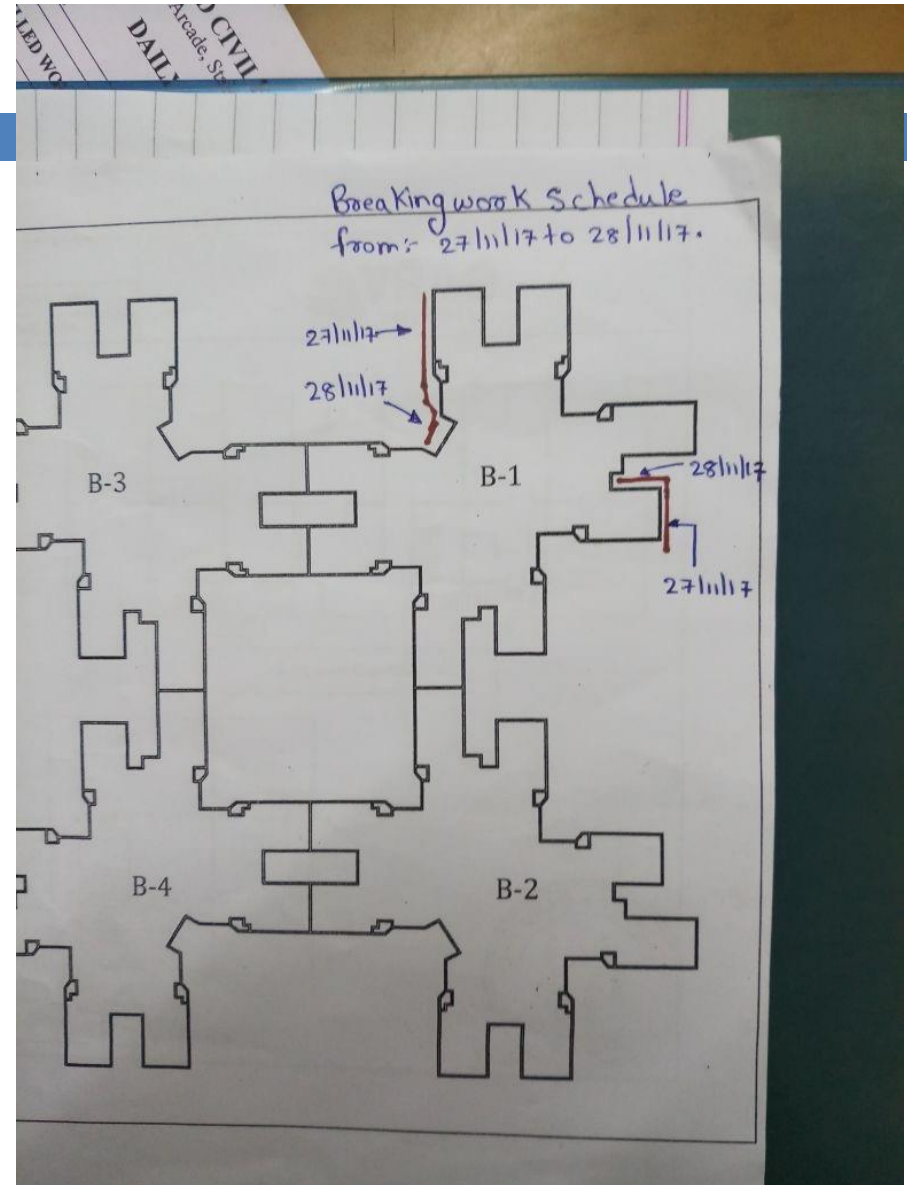 CIVIL
Arcade,
DAILY
LLED WO
Breaking work Schedule
from:- 27/11/17 to 28/11/17.
27/11/17
28/11/17
B-3
B-1
28/11/17
27/11/17
B-4
B-2